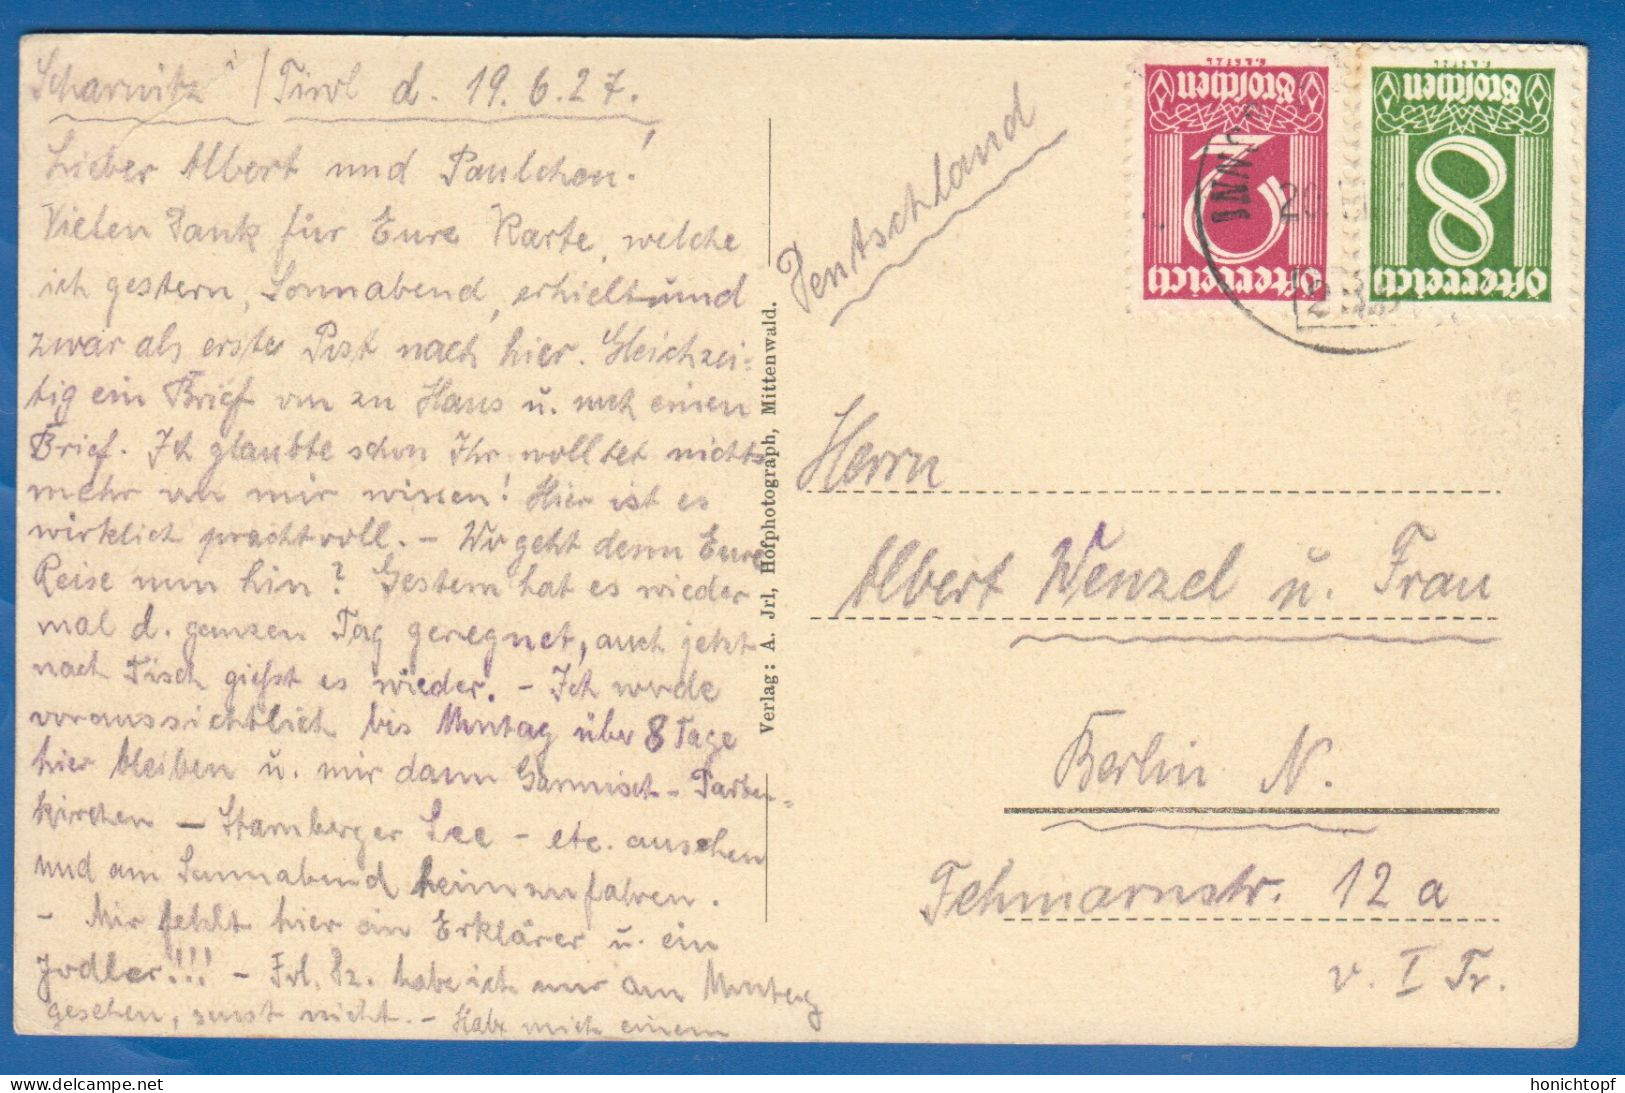 Scharnitz / Tirol d. 19.6.27.
Lieber Albert und Paulchen!
Vielen Dank für Eure Karte, welche
ich gestern, Sonnabend, erhielt und
zwar als erste Post nach hier. Gleichzei=
tig ein Brief von zu Haus u. noch einen
Brief. Ich glaubte schon Ihr wolltet nichts
mehr von mir wissen! Hier ist es
wirklich prachtvoll. – Wo geht denn Eure
Reise nun hin? Gestern hat es wieder
mal d. ganzen Tag geregnet, auch jetzt
nach Tisch giesst es wieder. – Ich werde
voraussichtlich bis Montag über 8 Tage
hier bleiben u. mir dann Garmisch – Parten=
kirchen – Starnberger See – etc. ansehen
und am Sonnabend heimzufahren.
– Mir fehlt hier ein Erklärer u. ein
Jodler!!! – Frl. habe ich nur am Montag
gesehen, sonst nicht. – Habe mich einem
Verlag: A. Jrl, Hofphotograph, Mittenwald.
Deutschland
Groschen
3
Österreich
Groschen
8
Österreich
INNS
20
Herrn
Albert Wenzel u. Frau
Berlin N.
Fehmarnstr. 12 a
v. I Tr.
honichtopf